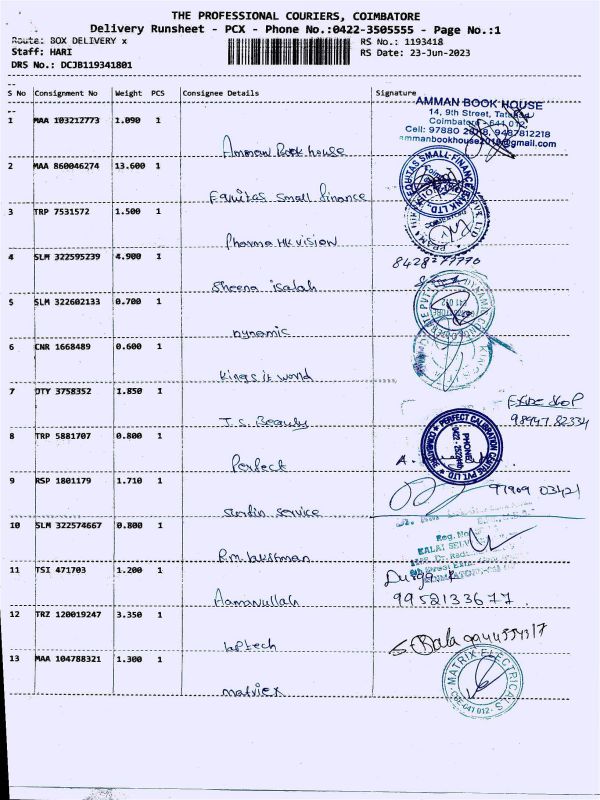 THE PROFESSIONAL COURIERS, COIMBATORE
Delivery Runsheet - PCX - Phone No.:0422-3505555 - Page No.:1
Route: BOX DELIVERY x
RS No.: 1193418
Staff: HARI
RS Date: 23-Jun-2023
DRS No.: DCJB119341801
S No Consignment No Weight PCS Consignee Details Signature
AMMAN BOOK HOUSE
14, 9th Street,
1 MAA 103212773 1.090 1
Coimbatore - 641 012.
Cell: 97880 9487812218
Amman Book house
2 MAA 860046274 13.600 1
EQUITAS SMALL FINANCE BANK LTD.
Equitas Small finance
3 TRP 7531572 1.500 1
Pharma HK vision
4 SLM 322595239 4.900 1
Sheena isalah
5 SLM 322602133 0.700 1
Dynamic
6 CNR 1668489 0.600 1
Kings it world
7 DTY 3758352 1.850 1
T.S. Beauty
98947 82334
8 TRP 5881707 0.800 1
PERFECT CALIBRATION CENTRE PVT LTD
PHONE:
COIMBATORE
Perfect
9 RSP 1801179 1.710 1
97909 03421
service
10 SLM 322574667 0.800 1
Reg. No
11 TSI 471703 1.200 1
Durga
9952133677
Aamanullah
12 TRZ 120019247 3.350 1
S. Bala
laptech
13 MAA 104788321 1.300 1
MATRIX ELECTRICALS
CBE-641 012.
matriex